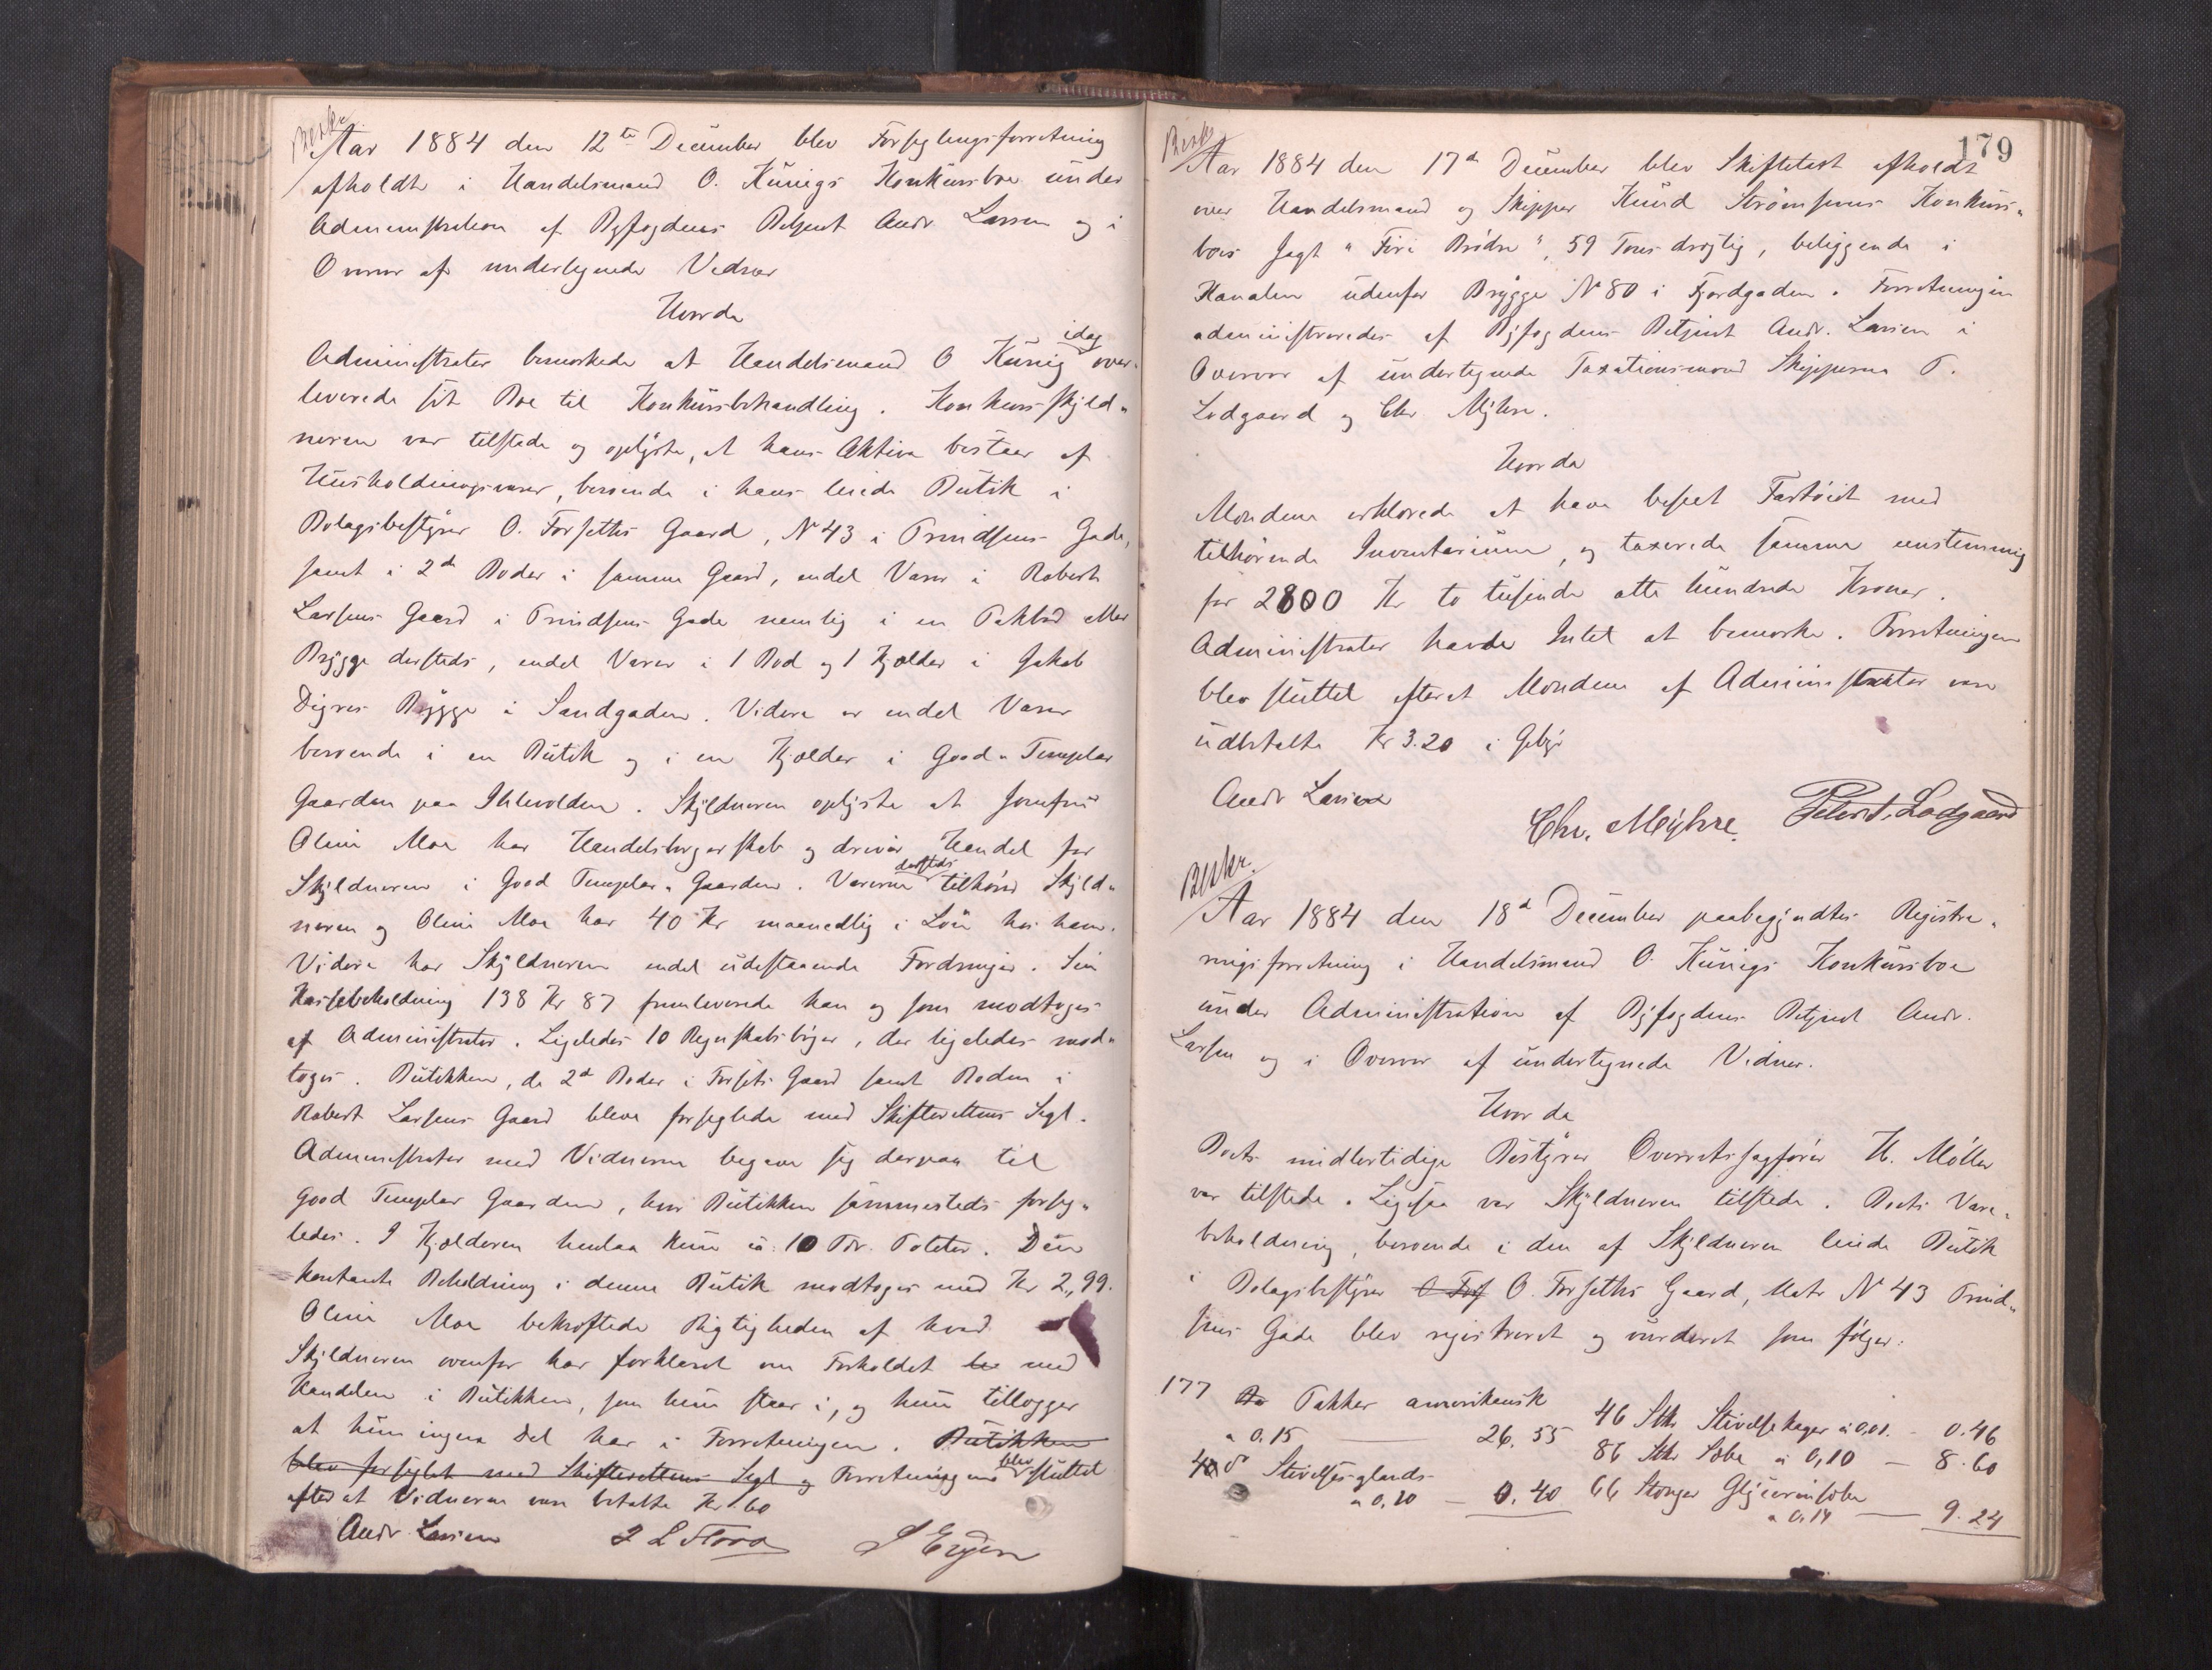 Beskr.
Aar 1884 den 12te December blev Forseglingsforretning
afholdt i Handelsmand O. Künigs Konkursboe under
Administration af Byfogdens Betjent Andr Larsen og i
Overvær af undertegnede Vidner
Hvorda
Administrator bemærkede at Handelsmand O Künig idag over-
leverede sit Boe til Konkursbehandling. Konkursskyld-
neren var tilstede og oplyste, at hans Aktiva bestaar af
Husholdningsvarer, beroende i hans leiede Butik i
Bolagsbestyrer O. Forseths Gaard, No 43 i Prindsens Gade,
samt i 2de Boder i samme Gaard, endel Varer i Robert
Larsens Gaard i Prindsens Gade nemlig i en Pakbod eller
Brygge dersteds, endel Varer i 1 Bod og 1 Kjælder i Jakob
Digres Brygge i Sandgaden. Videre er endel Varer
beroende i en Butik og i en Kjælder i Good-Templar
Gaarden paa Ihlevolden. Skyldneren oplyste at Jomfru
Oline Moe har Handelsborgerskab og driver Handel for
Skyldneren i Good Templar-Gaarden. Varerne dersteds tilhører Skyld-
neren og Oline Moe har 40 Kr maanedlig i Løn hos ham.
Videre har Skyldneren endel udestaaende Fordringer. Sin
Kassebeholdning 138 Kr 87 fremleverede han og som modtoges
af Administrator. Ligeledes 10 Regnskabsbøger, der ligeledes mod-
toges. Butikken, de 2de Boder i Forseths Gaard samt Boden i
Robert Larsens Gaard bleve forseglede med Skifterettens Segl.
Administrator med Vidnerne begave sig derpaa til
Good Templar Gaarden, hvor Butikken sammesteds forseg-
ledes. I Kjælderen henlaa kun ca 10 Tdr. Poteter. Den
kontante Beholdning i denne Butik modtoges med Kr 2,99.
Oline Moe bekræftede Rigtigheden af hvad
Skyldneren ovenfor har forklaret om Forholdet be med
Handelen i Butikken, som hun staar i, og hun tillægger
at hun ingen Del har i Forretningen. Butikken
blev forseglet med Skifterettens Segl og Forretningen blev sluttet
efter at Vidnerne vare betalte Kr 1.60
Andr Larsen
179
Beskr
Aar 1884 den 17de December blev Skiftetaxt afholdt
over Handelsmand og Skipper Knud Strømsens Konkurs-
boes Jagt "Fire Brødre", 59 Tons drægtig, beliggende i
Kanalen udenfor Brygge No 80 i Fjordgaden. Forretningen
administreredes af Byfogdens Betjent Andr. Larsen i
Overvær af undertegnede Taxationsmænd Skipperne P.
Lodgaard og Chr Myhre.
Hvorda
Mændene erklærede at have beseet Fartøiet med
tilhørende Inventarium, og taxerede samme eenstemmig
for 2800 Kr to tusinde otte hundrede Kroner.
Administrator havde Intet at bemærke. Forretningen
blev sluttet efterat Mændene af Administrator vare
udbetalte Kr 3.20 i Gebyr
Andr Larsen
Chr. Myhre. Peter Lodgaard
Beskr.
Aar 1884 den 18de December paabegyndtes Registre-
ringsforretning i Handelsmand O. Künigs Konkursboe
under Administration af Byfogdens Betjent Andr.
Larsen og i Overvær af undertegnede Vidner.
Hvorda
Boets midlertidige Bestyrer Overretssagfører H. Møller
var tilstede. Ligesaa var Skyldneren tilstede. Boets Vare-
beholdning, beroende i den af Skyldneren leiede Butik
i Bolagsbestyrer O Fors O. Forseths Gaard, Matr No 43 Prind-
sens Gade blev registreret og vurderet som følger:
177 Pakker amerikansk
a 0.15 — 26.55
40 do Stivelsesglands
a 0.10 — 0.40
46 Stkr Stivelsekager a 0,01. - 0.46
86 Stkr Sæbe a 0,10 — 8.60
66 Stænger Glycerinsæbe
a 0.14 — 9.24